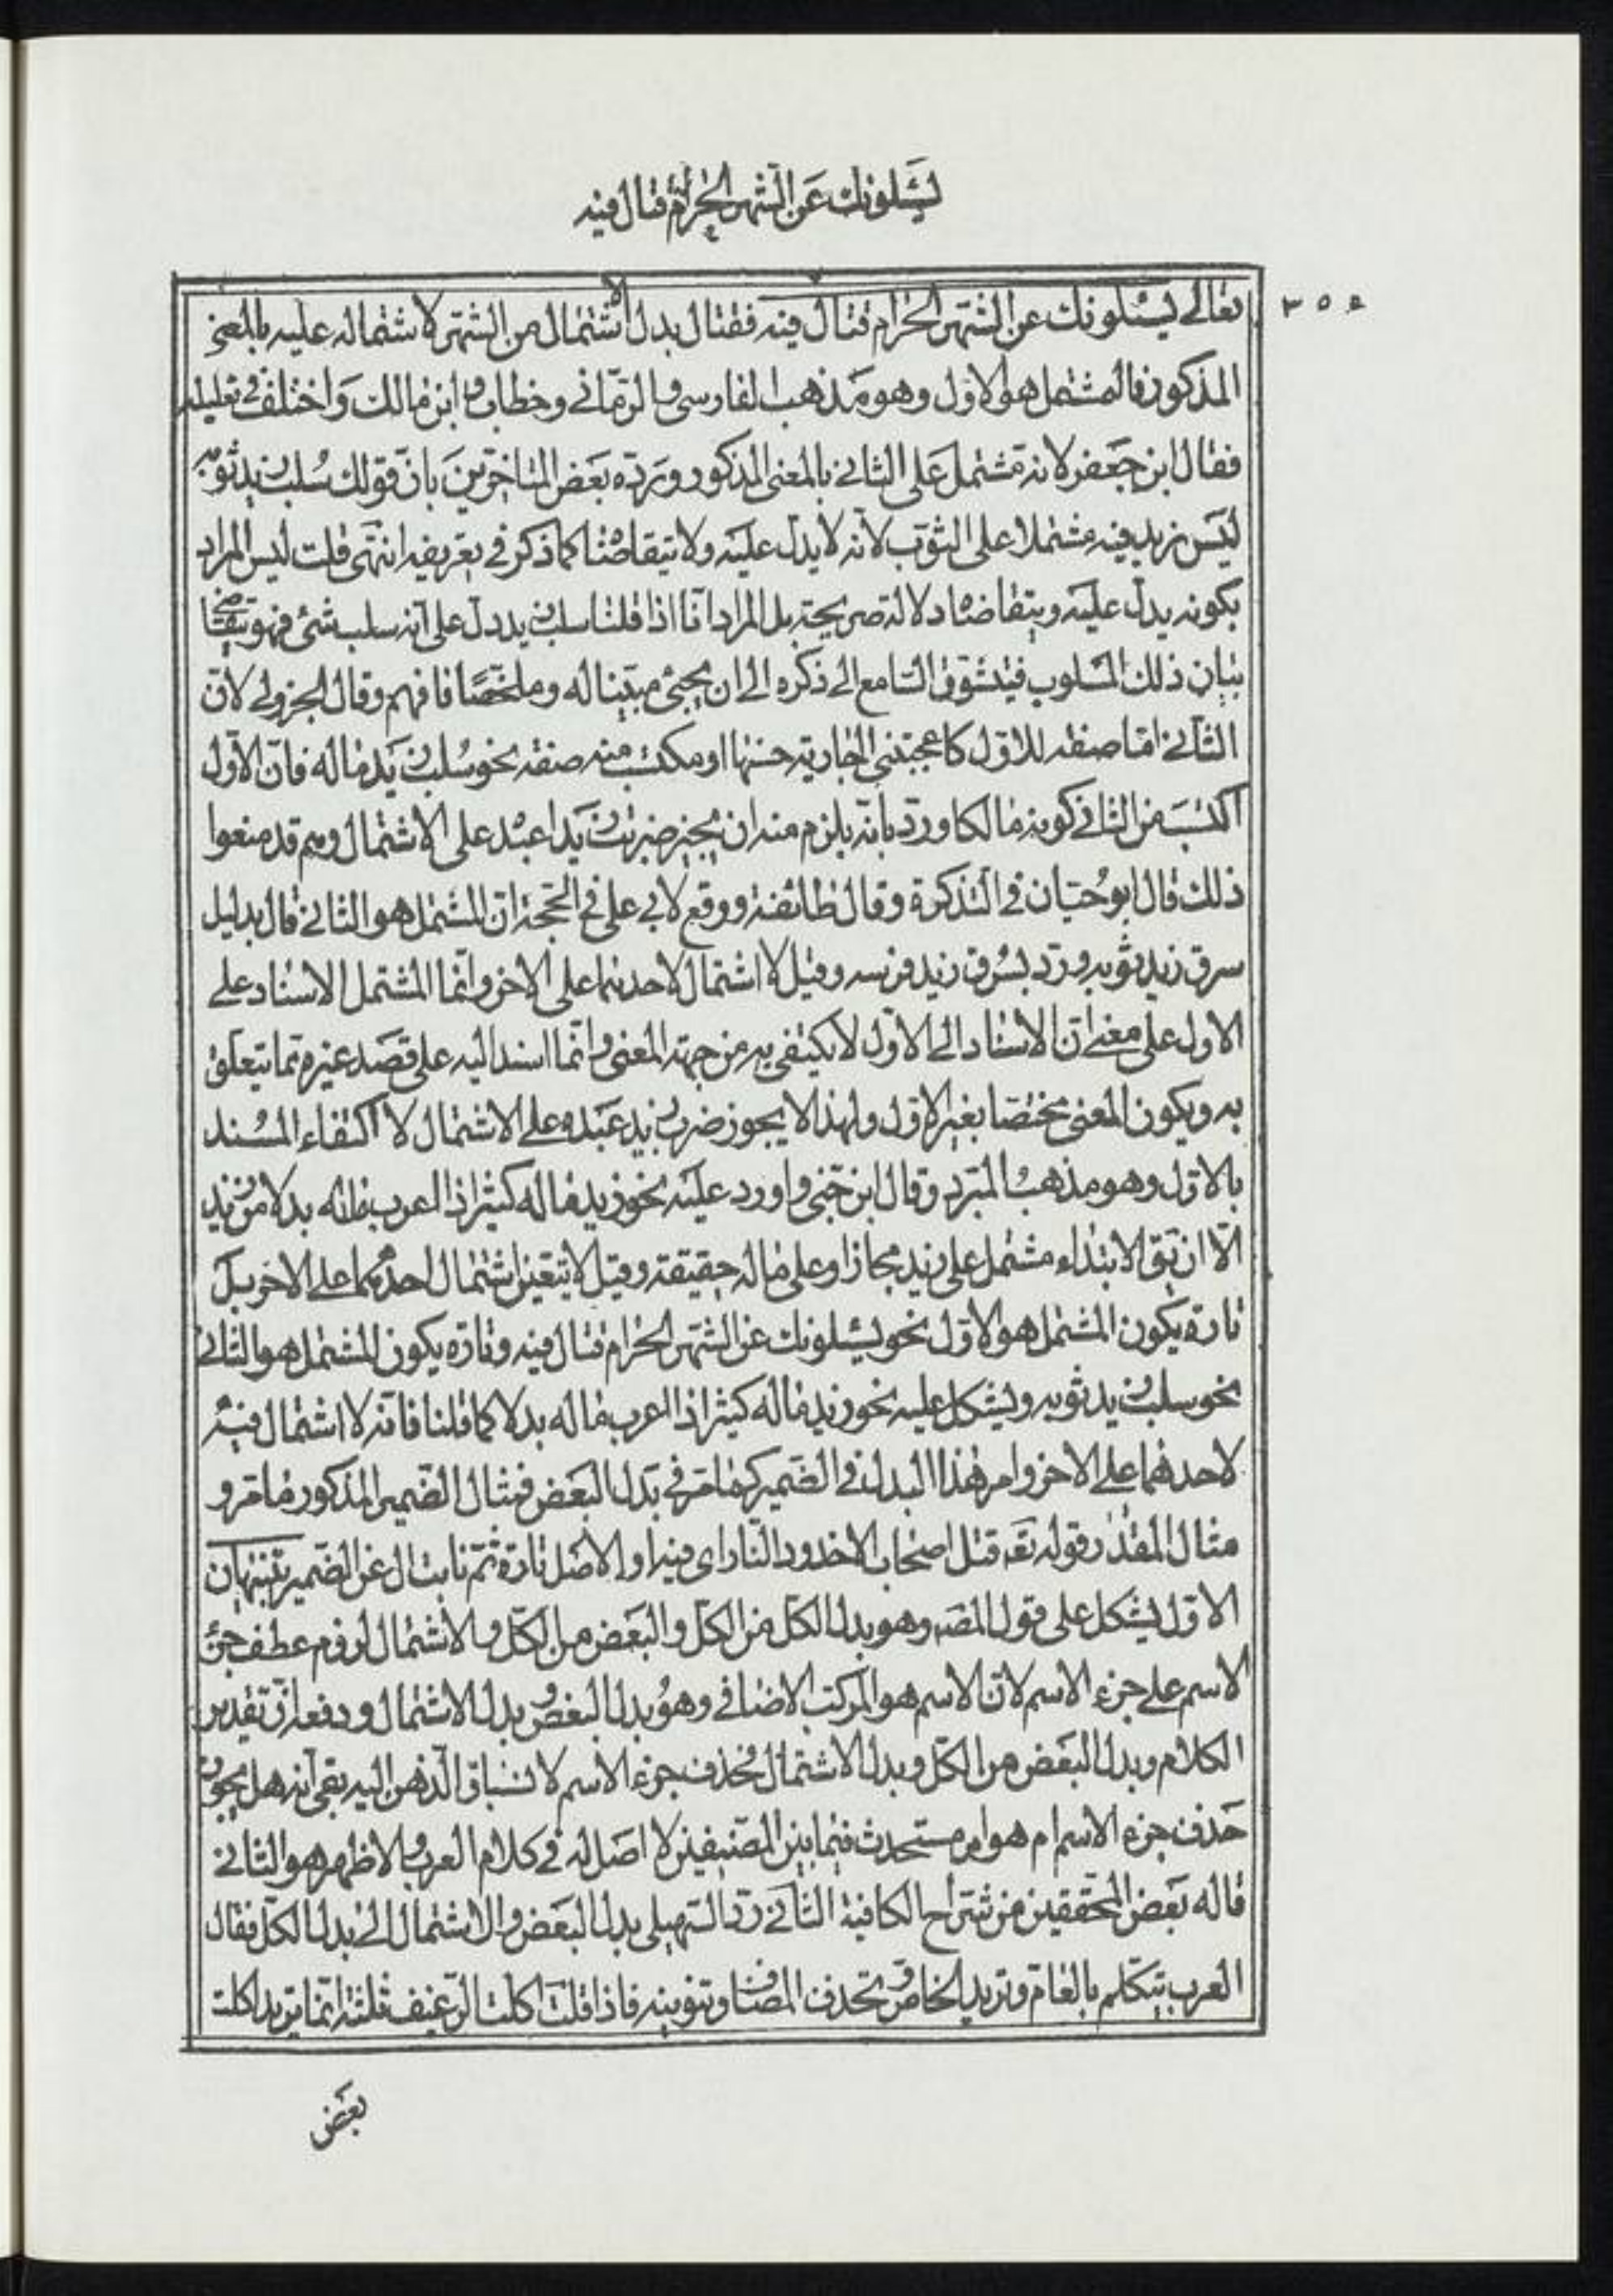 يَسْئَلُونَكَ عَنِ الشَّهْرِ الحَرَامِ قتال فيه
٣٥٤
تعالى يسئلونك عن الشهر الحرام قتال فيه فقتال بدل الاشتمال من الشهر لاشتماله عليه بالمعنى
المذكور فالمشتمل هو الاول وهو مذهب الفارسى والرّمّانى وخطاب وابن مالك واختلف فى تعليله
فقال ابن جعفر لانه مشتمل على الثانى بالمعنى المذكور وردّه بعض المتاخرين بانّ قولك سُلب زيد ثوبه
ليس زيد فيه مشتملا على الثوب لانه لا يدل عليه ولا يتقاضاه كما ذكر فى تعريفه انتهى قلت ليس المراد
بكونه يدل عليه ويتقاضاه دلالة صريحة بل المراد انّا اذا قلنا سلب زيد دل على انه سلب شئ فهو يتقاضى
بيان ذلك المسلوب فيتشوق السامع الى ذكره الى ان يجئ مبيّنا له وملخّصًا فافهم وقال الجزولى لانّ
الثانى امّا صفة للاوّل كاعجبتنى الجارية حسنها او مكتسب منه صفة نحو سُلب زيد ماله فانّ الاوّل
اكتسب من الثانى كونه مالكا وردّ بانه يلزم منه ان يجيز ضربت زيدا عبده على الاشتمال وهم قد منعوا
ذلك قال ابو حيّان فى التذكرة وقال طائفة ووقع لابى على فى الحجّة انّ المشتمل هو الثانى قال بدليل
سرق زيد ثوبه وردّ بسُرق زيد فرسه وقيل لا اشتمال لاحدهما على الاخر وانّما المشتمل الاسناد على
الاول على معنى انّ الاسناد الى الاوّل لا يكتفى به من جهة المعنى وانّما اسند اليه على قصد غيره ممّا يتعلّق
به ويكون المعنى مختصّا بغير الاوّل ولهذا لا يجوز ضرب زيد عبده على الاشتمال لاكتفاء المسند
بالاوّل وهو مذهب المبرّد وقال ابن جنّى واورد عليه نحو زيد ماله كثير اذا اعرب ماله بدلا من زيد
الّا ان يق الابتداء مشتمل على زيد مجازا وعلى ماله حقيقة وقيل لا يتعيّن اشتمال احدهما على الاخر بل
تارة يكون المشتمل هو الاوّل نحو يسئلونك عن الشهر الحرام قتال فيه وتارة يكون المشتمل هو الثانى
نحو سلب زيد ثوبه ويشكل عليه نحو زيد ماله كثير اذا اعرب ماله بدلا كما قلنا فانّه لا اشتمال فيه
لاحدهما على الاخر وامر هذا البدل فى الضمير كما مرّ فى بدل البعض فمثال الضمير المذكور ما مرّ و
مثال المقدّر قوله تعه قتل اصحاب الاخدود النار اى فيه او الاصل ناره ثمّ نابت ال عن الضمير تنبيهان
الاوّل يشكل على قول المصه وهو بدل الكل من الكل والبعض من الكلّ والاشتمال لزوم عطف جزء
الاسم على جزء الاسم لانّ الاسم هو المركّب الاضافى وهو بدل البعض وبدل الاشتمال ودفع بانّ تقدير
الكلام وبدل البعض من الكلّ وبدل الاشتمال فحذف جزء الاسم لانسباق الذهن اليه بقى انه هل يجوز
حذف جزء الاسم ام هو امر مستحدث فيما بين المصنّفين لا اصل له فى كلام العرب والاظهر هو الثانى
قاله بعض المحققين من شراح الكافية الثانى ردّ السهيلى بدل البعض والاشتمال الى بدل الكلّ فقال
العرب تتكلّم بالعامّ وتريد الخاصّ وتحذف المضاف وتنويه فاذا قلت اكلت الرّغيف ثلثه انّما تريد اكلت
بعض